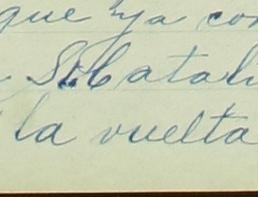 que ya con
Sta Catali
la vuelta